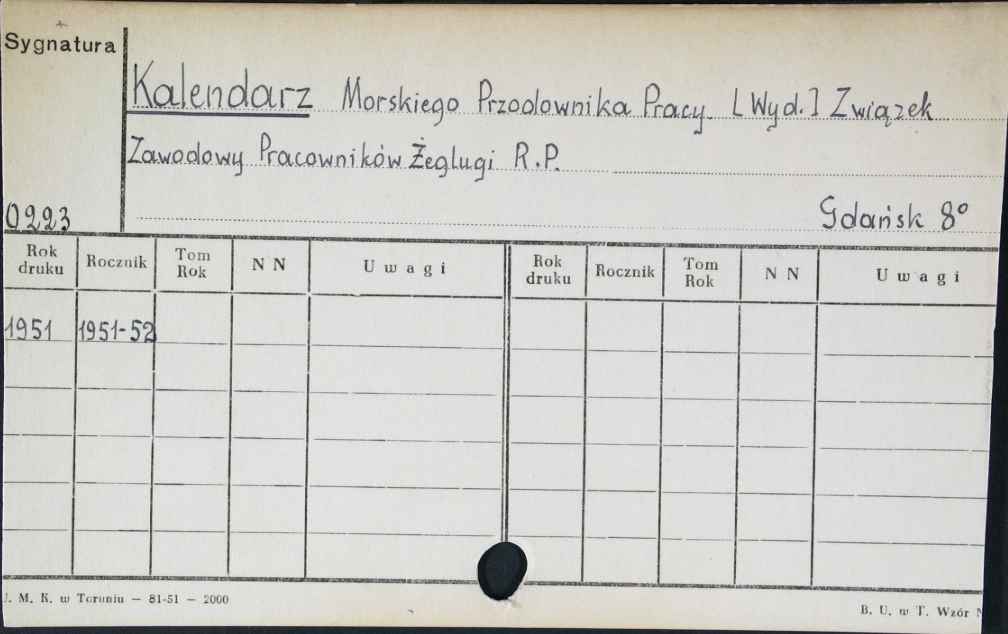 Sygnatura
Kalendarz Morskiego Przodownika Pracy. [Wyd.] Związek
Zawodowy Pracowników Żeglugi R.P.
0223
Gdańsk 8°
Rok druku Rocznik Tom Rok N N Uwagi Rok druku Rocznik Tom Rok N N Uwagi
1951 1951-52
J. M. K. w Toruniu — 81-51 — 2000
B. U. w T. Wzór